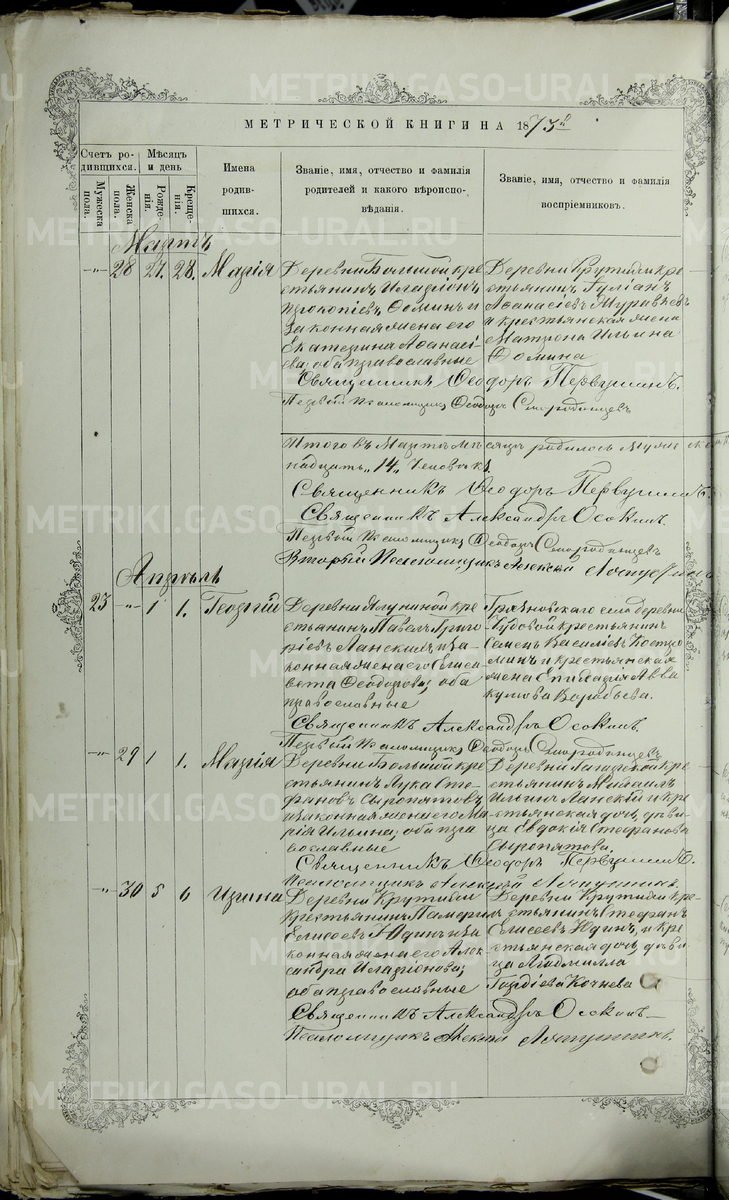 МЕТРИЧЕСКОЙ КНИГИ НА 1873й
Счетъ ро-
дившихся.
Мѣсяцъ
и день
Мужеска
пола.
Женска
пола.
Рожде-
нія.
Креще-
нія.
Имена
родив-
шихся.
Званіе, имя, отчество и фамилія
родителей и какого вѣроиспо-
вѣданія.
Званіе, имя, отчество и фамилія
воспріемниковъ.
Мартъ
28 27. 28. Марія
Деревни Большой кре
стьянинъ Иларіонъ
Прокопіевъ Ѳоминъ и
законная жена его
Екатерина Аѳанасі
ева; оба православные
Деревни Крутихи кре
стьянинъ Іуліанъ
Аѳанасіевъ Муравьевъ
и крестьянская жена
Матрона Ильина
Ѳомина
Священникъ Ѳеодоръ Первушинъ.
Первый Псаломщикъ Ѳеодоръ Смородинцевъ
Итого въ Мартѣ мѣсяцѣ родилось
надцать „14„ человѣкъ
Священникъ Ѳеодоръ Первушинъ.
Священникъ Александръ Осокинъ.
Первый Псаломщикъ Ѳеодоръ Смородинцевъ
Второй Псаломщикъ Алексѣй
Апрѣль
23 1 1. Георгій
Деревни кре
стьянинъ Павелъ Григо
ріевъ Ланскихъ и за
конная жена его Елиса
вета Ѳеодорова; оба
православные
Грязновскаго села деревни
крестьянинъ
Семенъ Василіевъ Костро
минъ и крестьянская
жена Авва
кумова Воробьева.
Священникъ Александръ Осокинъ.
Первый Псаломщикъ Ѳеодоръ Смородинцевъ
29 1 1. Марія
Деревни Большой кре
стьянинъ Лука Сте
фановъ Сыропятовъ
и законная жена его Ма
рія Ильина; оба пра
вославные
Деревни кре
стьянинъ Михаилъ
Ильинъ Ланскій и кре
стьянская дочь, дѣви
ца Евдокія Стефанова
Сыропятова.
Священникъ Ѳеодоръ Первушинъ.
Псаломщикъ Алексѣй
30 5 6 Ирина
Деревни Крутихи
крестьянинъ Памфилъ
Елисеевъ Юдинъ и за
конная жена его Алек
сандра Иларіонова;
оба православные
Деревни Крутихи кре
стьянинъ Стефанъ
Елисеевъ Юдинъ, и кре
стьянская дочь, дѣви
ца Людмилла
Кочнева
Священникъ Александръ Осокинъ
Псаломщикъ Алексѣй
METRIKI.GASO-URAL.RU